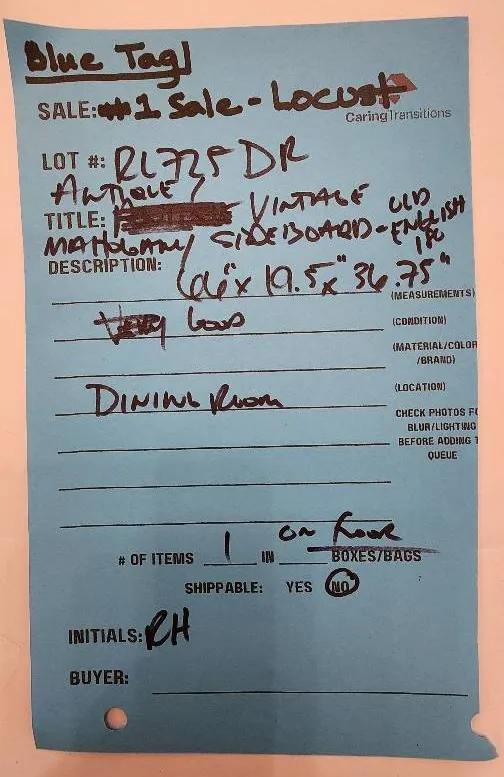 Blue Tag
SALE: #1 Sale - Locust
CaringTransitions
LOT #: RL725 DR
ANTIQUE /
TITLE: VINTAGE OLD
MAHOGANY SIDEBOARD - ENGLISH
DESCRIPTION:
66" x 19.5 x " 36.75"
(MEASUREMENTS)
Good (CONDITION)
(MATERIAL/COLOR
/BRAND)
DINING ROOM (LOCATION)
CHECK PHOTOS FO
BLUR/LIGHTING
BEFORE ADDING T
QUEUE
# OF ITEMS 1 IN on floor BOXES/BAGS
SHIPPABLE: YES NO
INITIALS: RH
BUYER: